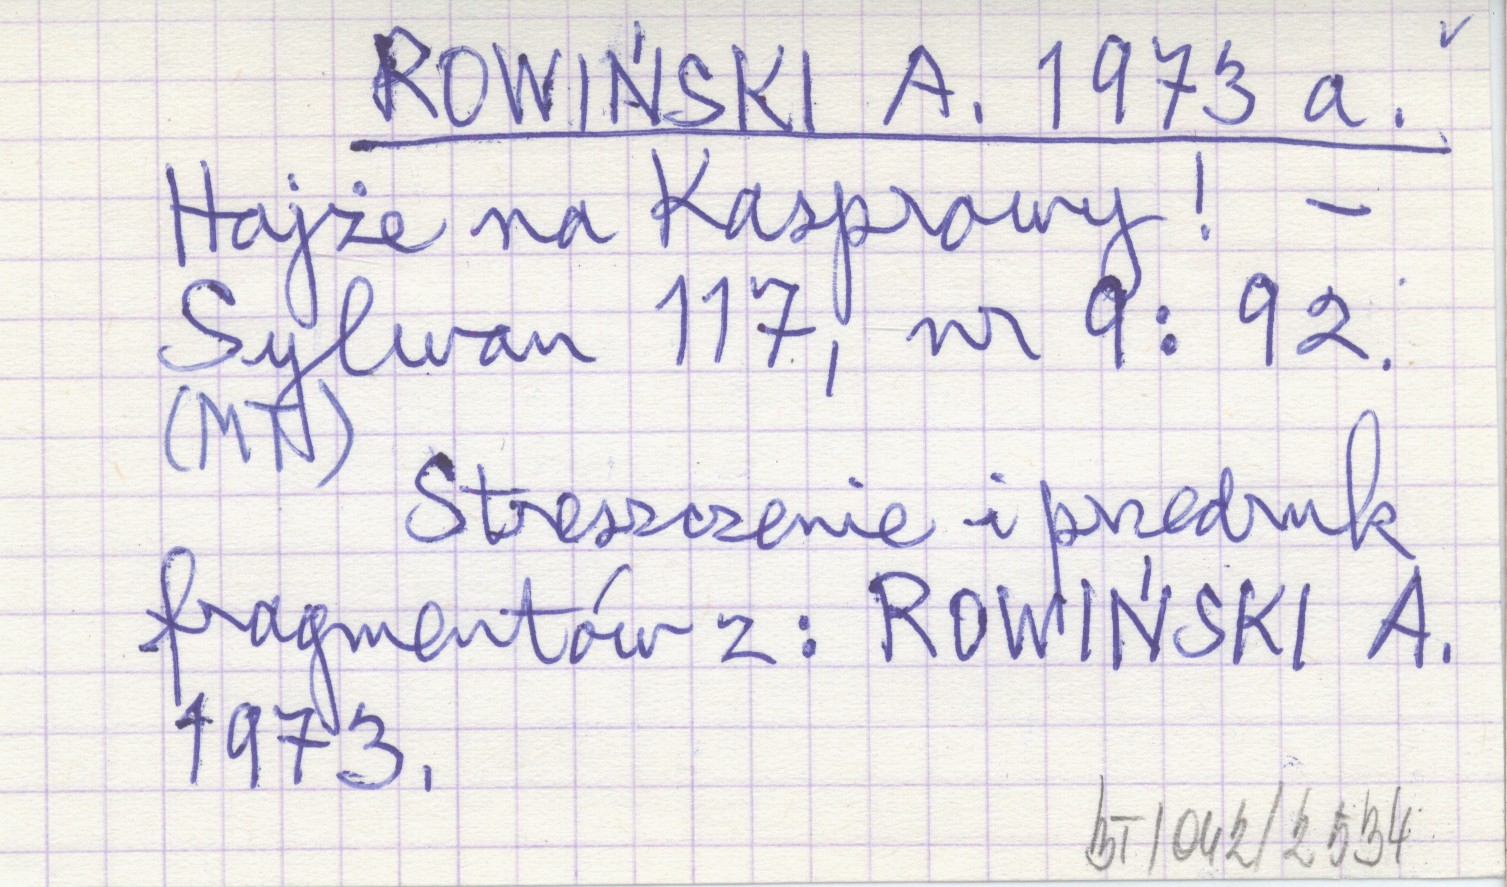 ROWIŃSKI A. 1973 a.
Hajże na Kasprowy! –
Sylwan 117, nr 9: 92.
(MTN)
Streszczenie i przedruk
fragmentów z: ROWIŃSKI A.
1973.
BT/042/2534